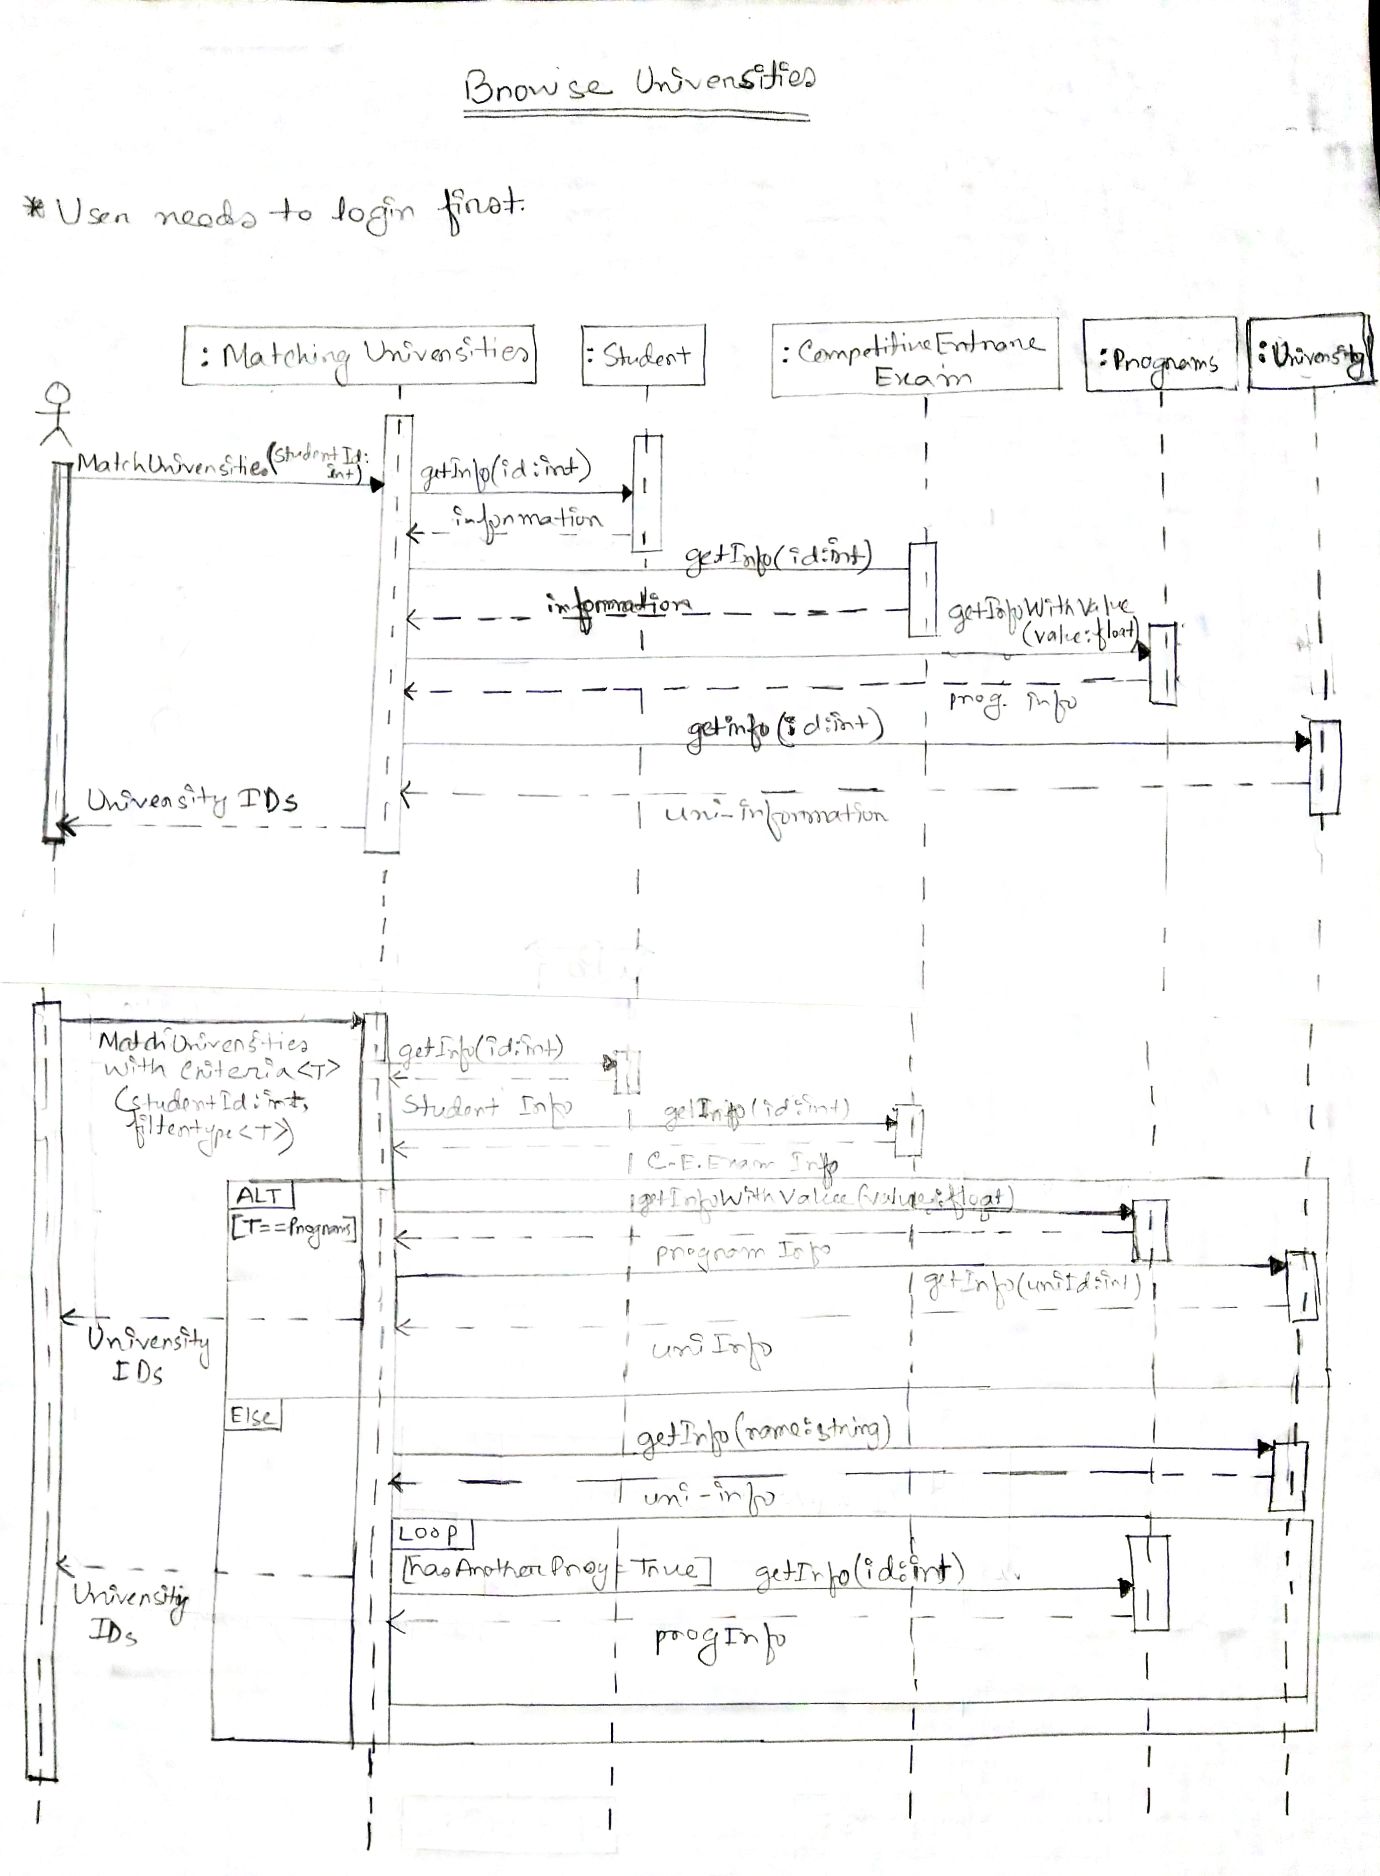 Browse Universities
* User needs to login first.
: Matching Universities
: Student
: CompetitiveEntrane
Exam
: Programs
: University
MatchUniversities(StudentId:
int)
getInfo(id:int)
information
getInfo(id:int)
information
getInfoWithValue
(value:float)
prog. info
getinfo(id:int)
University IDs
uni-information
MatchUniversities
with Criteria<T>
(studentId:int,
filtertype<T>)
getInfo(id:int)
Student Info
getInfo(id:int)
C.E.Exam Info
ALT
[T==Programs]
getInfoWithValue(value:float)
program Info
getInfo(uniId:int)
University
IDs
uni Info
Else
getInfo(name:string)
uni-info
Loop
[hasAnotherProg = True]
getInfo(id:int)
University
IDs
progInfo